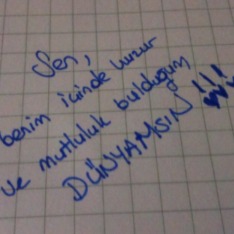 Sen,
benim içinde huzur
ve mutluluk bulduğum
DÜNYAMSIN !!!